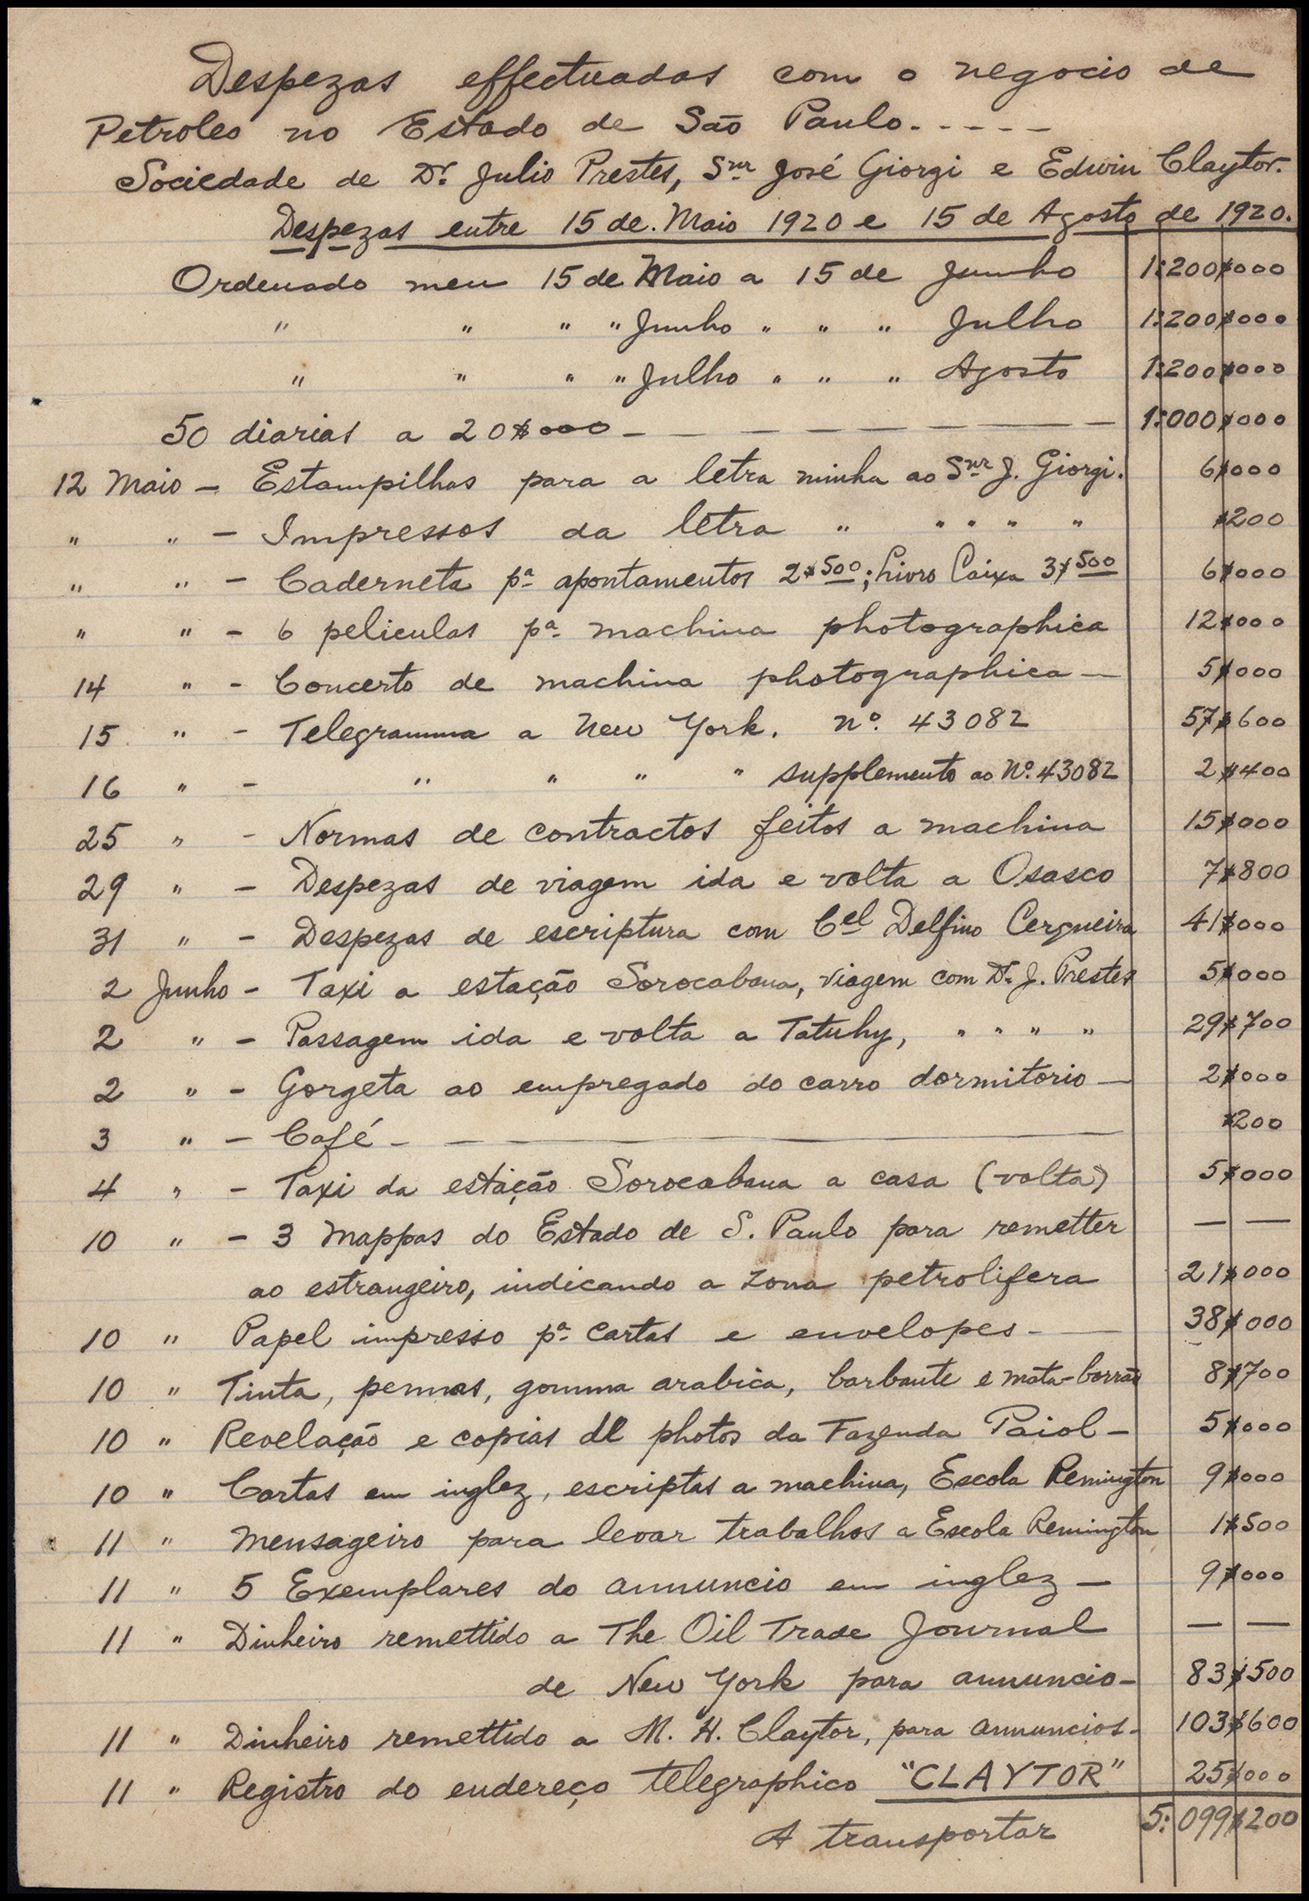 Despezas effectuadas com o negocio de
Petroleo no Estado de São Paulo.-----
Sociedade de Dr. Julio Prestes, Snr José Giorgi e Edwin Claytor.
Despezas entre 15 de Maio 1920 e 15 de Agosto de 1920.
Ordenado meu 15 de Maio a 15 de Junho 1:200$000
" " " " Junho " " " Julho 1:200$000
" " " " Julho " " " Agosto 1:200$000
50 diarias a 20$000 - — — — — — — 1:000$000
12 Maio - Estampilhas para a letra minha ao Snr J. Giorgi. 6$000
" " - Impressos da letra " " " " " $200
" " - Caderneta pa apontamentos 2$500; Livro Caixa 3$500 6$000
" " - 6 peliculas pa machina photographica 12$000
14 " - Concerto de machina photographica — 5$000
15 " - Telegramma a New York. No. 43082 57$600
16 " - " " " " supplemento ao No. 43082 2$400
25 " - Normas de contractos feitos a machina 15$000
29 " - Despezas de viagem ida e volta a Osasco 7$800
31 " - Despezas de escriptura com Cel Delfino Cerqueira 41$000
2 Junho - Taxi a estação Sorocabana, viagem com Dr. J. Prestes 5$000
2 " - Passagem ida e volta a Tatuhy, " " " " 29$700
2 " - Gorgeta ao empregado do carro dormitorio — 2$000
3 " - Café - — — — — — — $200
4 " - Taxi da estação Sorocabana a casa (volta) 5$000
10 " - 3 Mappas do Estado de S. Paulo para remetter — —
ao estrangeiro, indicando a zona petrolifera 21$000
10 " Papel impresso pa cartas e envelopes - — 38$000
10 " Tinta, pennas, gomma arabica, barbante e mata-borrão 8$700
10 " Revelação e copias de photos da Fazenda Paiol - 5$000
10 " Cartas em inglez, escriptas a machina, Escola Remington 9$000
11 " Mensageiro para levar trabalhos a Escola Remington 1$500
11 " 5 Exemplares do annuncio em inglez - 9$000
11 " Dinheiro remettido a The Oil Trade Journal — —
de New York para annuncio - 83$500
11 " Dinheiro remettido a M. H. Claytor, para annuncios - 103$600
11 " Registro do endereço telegraphico "CLAYTOR" 25$000
A transportar 5:099$200